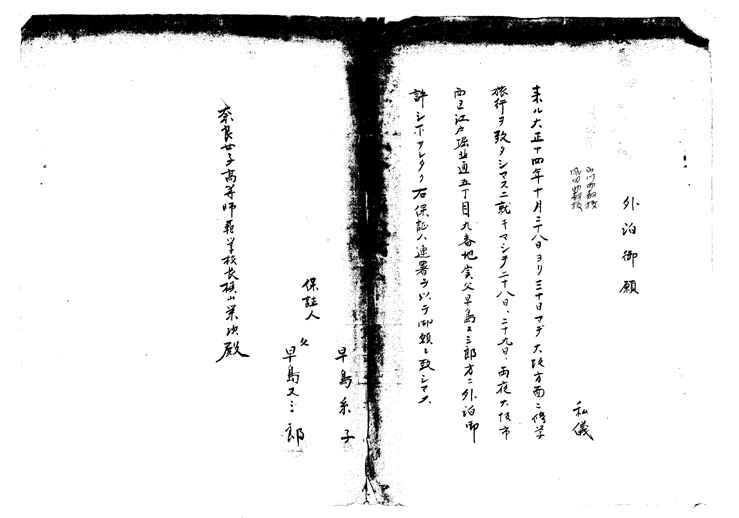 外泊御願
私儀
来ル大正十四年十月二十八日ヨリ三十日マデ大阪方面ニ修学
旅行ヲ致タシマスニ就キマシテ二十八日、二十九日、両夜大阪市
西区江戸堀北通五丁目九番地実父早島又三郎方ニ外泊御
許シ下サレタク右保証人連署ヲ以テ御願ヒ致シマス
早島糸子
保証人
父
早島又三郎
奈良女子高等師範学校長槇山栄次殿